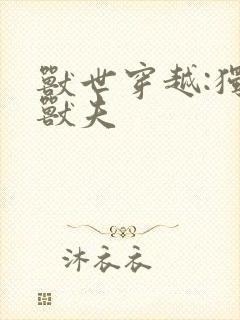 獸世穿越:獨
獸夫
沐衣衣